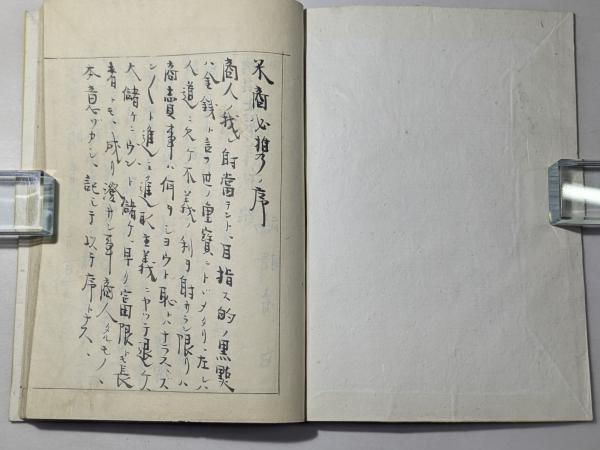 米商必携ノ序
商人ノ我レ射當テント、目指ス的ノ黒點
ハ金錢ト言フ世ノ重寶ニトドメタリ、左レバ
人道ニ欠ケ不義ノ利ヲ射サラン限リハ
商賣事ハ何ヲショウト恥トハナラズ、ズ
ン／＼ト進ミ進取主義ニヤッテ退ケ
大儲ケニウント儲ケ、早ク富限
者トモ、成リ澄サン事商人タルモノ、
本意ゾカシ、託シテ以テ序トナス、